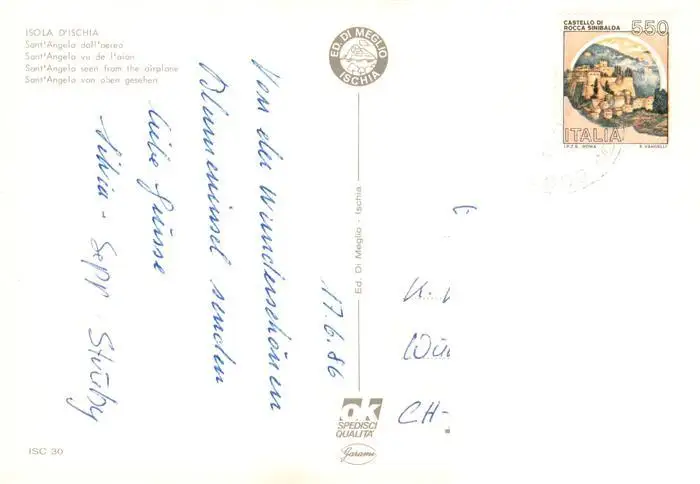 ISOLA D'ISCHIA
Sant'Angelo dall'aereo
Sant'Angelo vu de l'aion
Sant'Angelo seen from the airplane
Sant'Angelo von oben gesehen
ED. DI MEGLIO
ISCHIA
CASTELLO DI
ROCCA SINIBALDA
550
ITALIA
I.P.Z.S. ROMA E. VANGELLI
17.6.86
Von der Wunderschönen
Blumeninsel senden
liebe Grüsse
Silvia - Sepp
Ed. Di Meglio - Ischia
K.
CH-
OK
SPEDISCI
QUALITA'
Garami
ISC 30